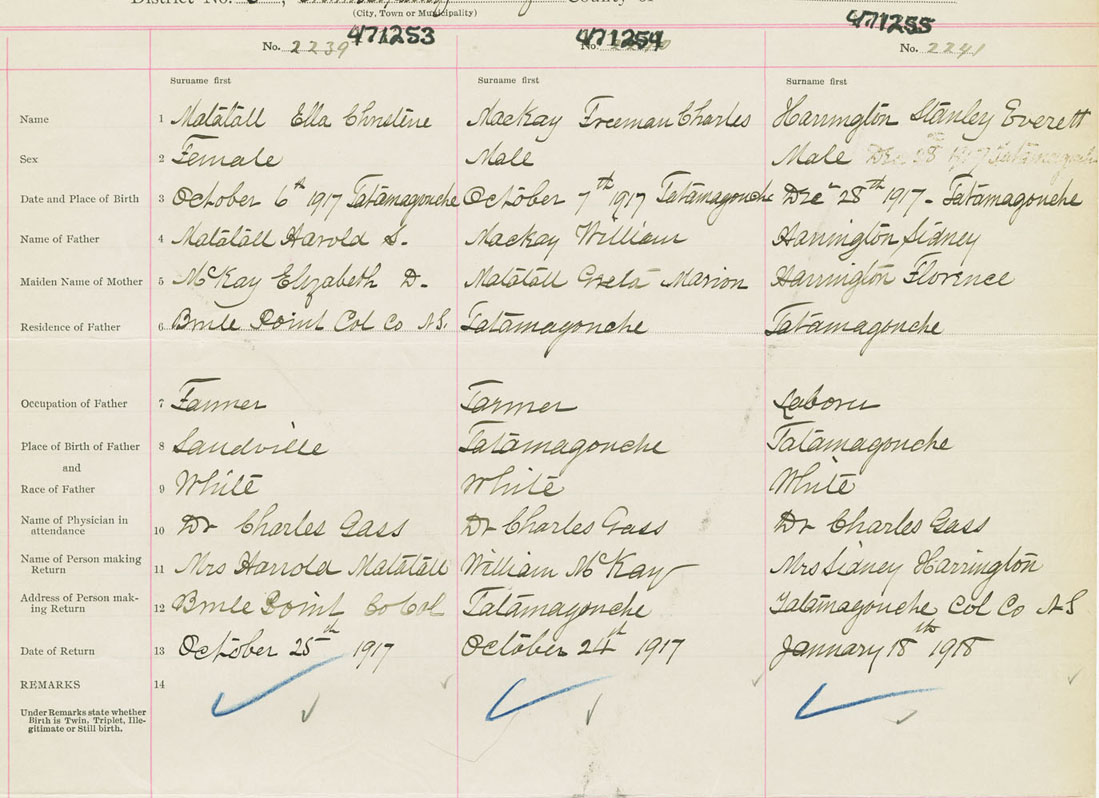 District No. County of
(City, Town or Municipality)
471253 471254 471255
No. 2239 No. No. 2241
Surname first Surname first Surname first
Name 1 Matatall Ella Christene MacKay Freeman Charles Harrington Stanley Everett
Sex 2 Female Male Male Dec 28 1917 Tatamagouche
Date and Place of Birth 3 October 6th 1917 Tatamagouche October 7th 1917 Tatamagouche Dec 28th 1917 - Tatamagouche
Name of Father 4 Matatall Harold S. Mackay William Harrington Sidney
Maiden Name of Mother 5 McKay Elizabeth D. Matatall Greta Marion Harrington Florence
Residence of Father 6 Brule Point Col Co N.S. Tatamagouche Tatamagouche
Occupation of Father 7 Farmer Farmer Laborer
Place of Birth of Father 8 Sandville Tatamagouche Tatamagouche
and
Race of Father 9 White White White
Name of Physician in
attendance 10 Dr Charles Gass Dr Charles Gass Dr Charles Gass
Name of Person making
Return 11 Mrs Harrold Matatall William McKay Mrs Sidney Harrington
Address of Person mak-
ing Return 12 Brule Point Co Col Tatamagouche Tatamagouche Col Co N S
Date of Return 13 October 25th 1917 October 24th 1917 January 18th 1918
REMARKS 14
Under Remarks state whether
Birth is Twin, Triplet, Ille-
gitimate or Still birth.